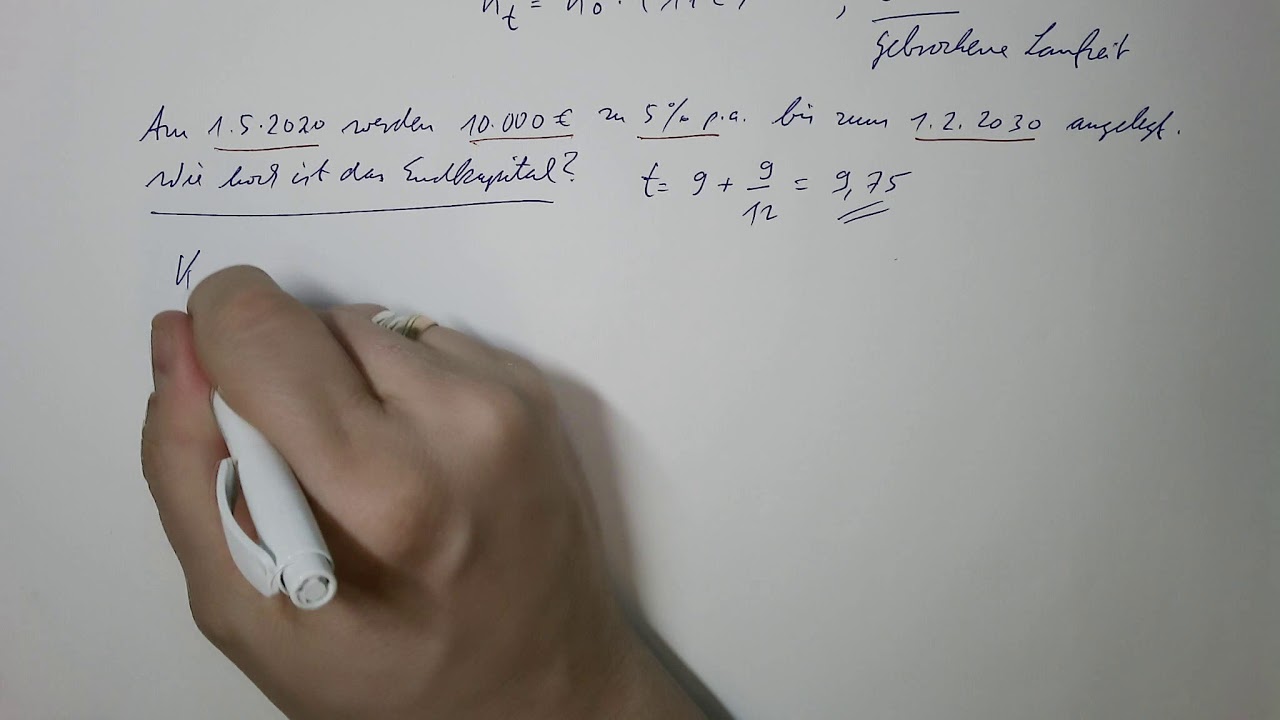 K_t = K_0 · (1+i) ,
gebrochene Laufzeit
Am 1.5.2020 werden 10.000 € zu 5% p.a. bis zum 1.2.2030 angelegt.
Wie hoch ist das Endkapital? t = 9 + 9/12 = 9,75
K